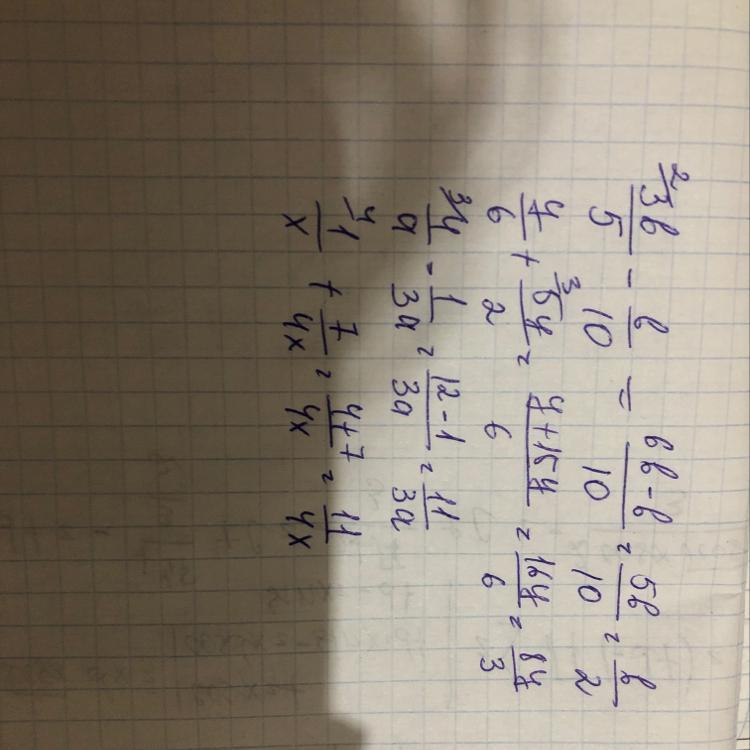 2/ 3b/5 - b/10 = (6b-b)/10 = 5b/10 = b/2
y/6 + 3/ 5y/2 = (y+15y)/6 = 16y/6 = 8y/3
3/ 4/a - 1/3a = (12-1)/3a = 11/3a
4/ 1/x + 7/4x = (4+7)/4x = 11/4x